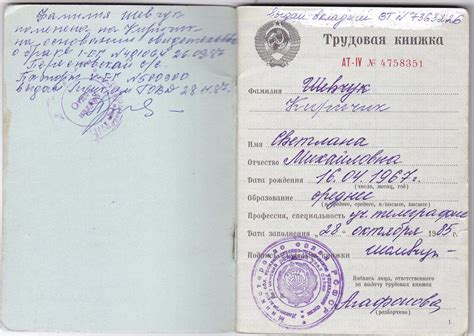 Фамилия Шевчук
изменена на Кирпичик
на основании свидетельства
о браке I-ЕГ № 481064 26.09.87
с/с.
Паспорт № 500300
выдан ГОВД 28.11.87.
Выдан вкладыш ВТ № 7363226
Трудовая книжка
АТ-IV № 4758351
Фамилия Шевчук
Кирпичик
Имя Светлана
Отчество Михайловна
Дата рождения 16.04.1967г.
(число, месяц, год)
Образование среднее
Профессия, специальность уч. телеграфист
Дата заполнения 28 октября 1985 г.
книжки
Подпись лица, ответственного
за выдачу трудовых книжек
Агафонова
(разборчиво)
1